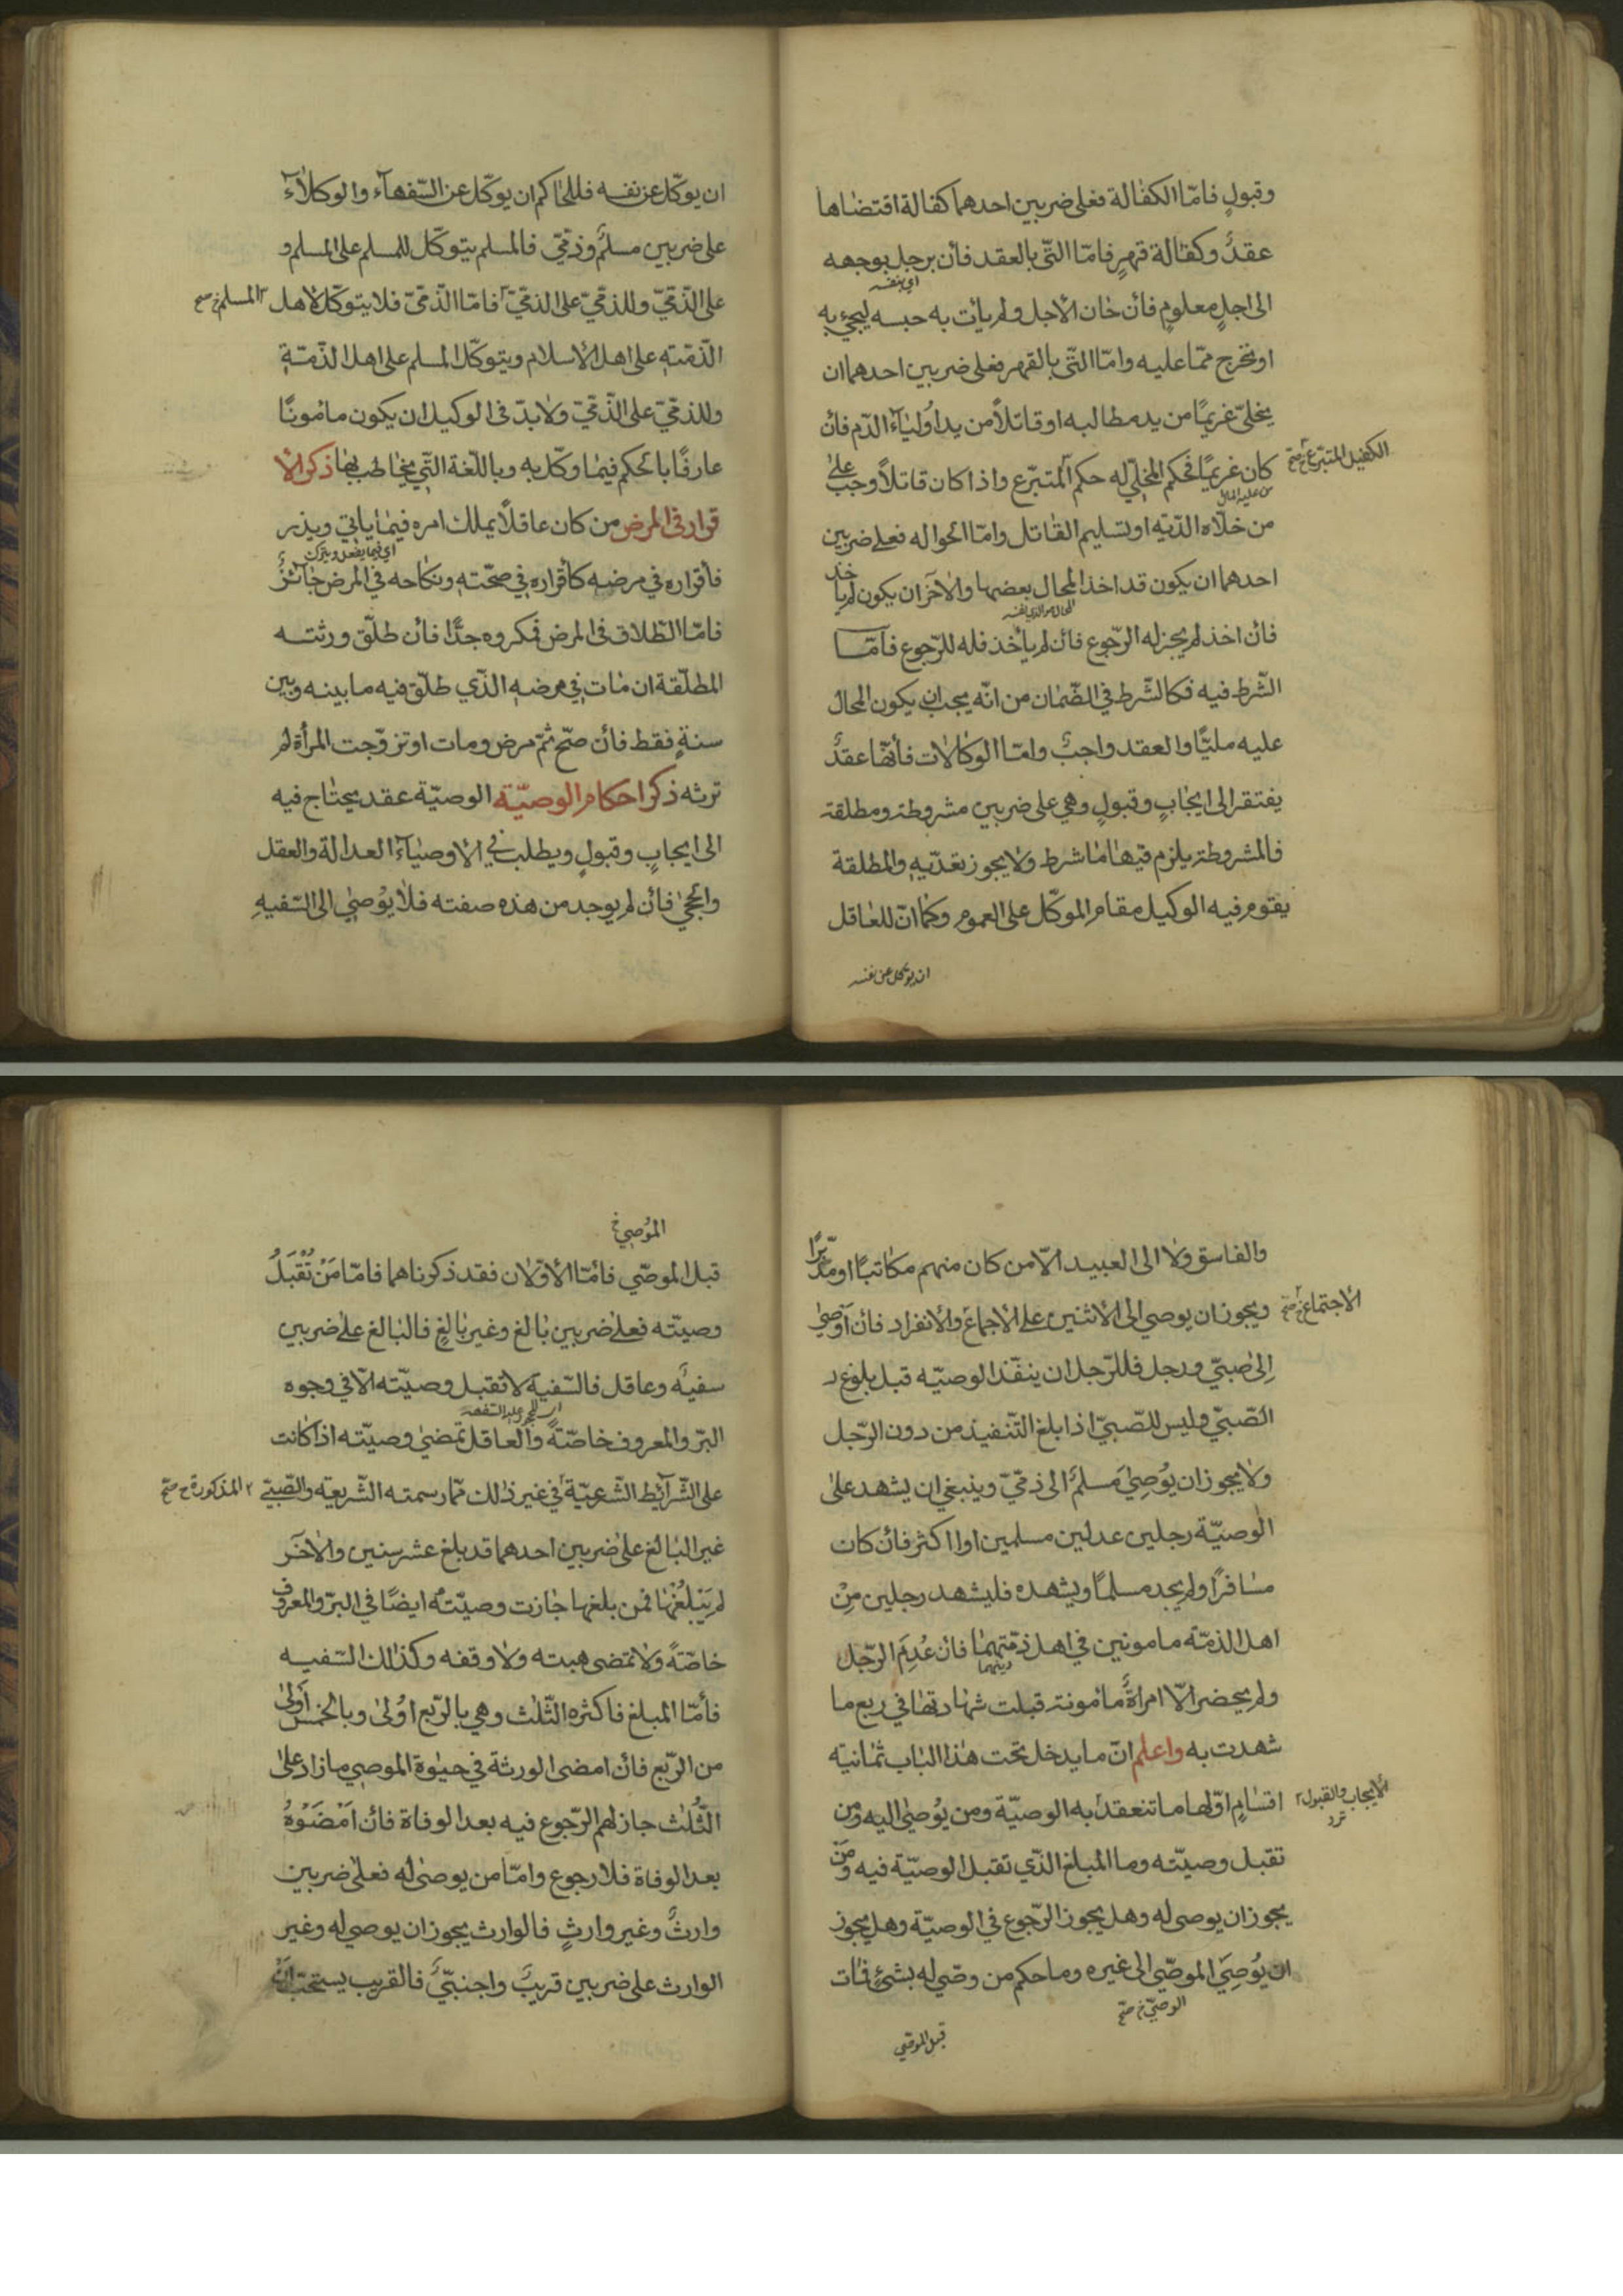 وقبولٍ فامّا الكفالة فعلى ضربين احدهما كفالة اقتضاها
عقدٌ وكفالة قهرٍ فامّا الّتي بالعقد فأن برجل بوجهه
اي بنفسه
الى اجلٍ معلومٍ فأن خان الأجل ولم يأت به حبسه ليجيءَ به
او يخرج ممّا عليه وامّا الّتي بالقهر فعلى ضربين احدهما ان
يخلّي غريمًا من يد مطالبه او قاتلاً من يد اولياءَ الدّم فأن
كان غريمًا فحكم المخلّي له حكم المتبرّع واذا كان قاتلاً وجب على
الكفيل المتبرّع خ صح
من عليه المال
من خلّاه الدّية او تسليم القاتل وامّا الحواله فعلى ضربين
احدهما ان يكون قد اخذ المحال بعضها والآخر ان يكون لم يأخذ
فأن اخذ لم يجز له الرّجوع فأن لم يأخذ فله للرّجوع فأمّا
الشّرط فيه فكالشّرط في الضّمان من انّه يجب ان يكون المحال
عليه مليّا والعقد واجبٌ وامّا الوكالات فأنّها عقدٌ
يفتقر الى ايجابٍ وقبولٍ وهي على ضربين مشروطة ومطلقة
فالمشروطة يلزم فيها ما شرط ولا يجوز تعدّيه والمطلقة
يقوم فيه الوكيل مقام الموكّل على العموم وكما انّ للعاقل
ان يوكل عن نفسه
ان يوكّل عن نفسه فللحاكم ان يوكّل عن السّفهاَء والوكلاَء
على ضربين مسلمٌ وذمّيّ فالمسلم يتوكّل للمسلم على المسلم و
على الذّمّيّ وللذمّيّ على الذمّيّ فامّا الذّمّيّ فلا يتوكّل لأهل
المسلم خ صح
الذّمّتهِ على اهل الأسلام ويتوكّل المسلم على اهل الذّمّةِ
وللذمّيّ على الذّمّيّ ولابدّ في الوكيل ان يكون مامونًا
عارفًا بالحكم فيما وكّل به وباللّغة الّتي يخاطب بها ذكر الأ
قرار في المرض من كان عاقلًا يملك امره فيما ياتي ويذر
اي فيما يفعل ويترك
فأقراره في مرضه كأقراره في صحّته ونكاحه في المرض جائزٌ
فامّا الطّلاق في المرض فمكروه جدًّا فأن طلّق ورثته
المطلّقة ان مات في مرضه الّذي طلّق فيه ما بينه وبين
سنةٍ فقط فأن صحّ ثمّ مرض ومات او تزوّجت المرأة لم
ترثه ذكر احكام الوصيّة الوصيّة عقد يحتاج فيه
الى ايجابٍ وقبولٍ ويطلب في الأوصياَء العدالة والعقل
والحجىٰ فأن لم يوجد من هذه صفته فلا يُوصي الى السّفيهِ
والفاسق ولا الى العبيد الّا من كان منهم مكاتبًا او مدبّرًا
ويجوز ان يوصي الى الأثنين على الأجماع والأنفراد فأن اوصىٰ
الاجتماع خ صح
اِلى صبيّ ورجل فللرّجل ان ينفّذ الوصيّه قبل بلوغ
الصّبيّ وليس للصّبيّ اذا بلغ التّنفيذ من دون الرّجل
ولا يجوز ان يُوصِيَ مسلمٌ الى ذمّيّ وينبغي ان يشهد على
الوصيّة رجلين عدلين مسلمين او اكثر فأن كان
مسافرًا ولم يجد مسلمًا ويشهده فليشهد رجلين مِنْ
اهل الذمّة مامونين في اهل ذمّتهما فان عُدِمَ الرّجل
دينهما
ولم يحضر الّا امراةٌ مامونة قبلت شهادتها في ربع ما
شهدت به واعلم انّ ما يدخل تحت هذا الباب ثمانية
اقسامٍ اوّلها ما تنعقد به الوصيّة ومن يُوصىٰ اليه ومن
الايجاب والقبول
تقبل وصيّته وما المبلغ الّذي تقبل الوصيّة فيه ومَنْ
يجوز ان يوصى له وهل يجوز الرّجوع في الوصيّة وهل يجوز
ان يُوصِيَ الموصّي الى غيره وما حكم من وصّي له بشيءٍ فمات
الوصيّ خ صح
قبل الموصّي
الموُصي خ
قبل الموصّي فأمّا الأوّلان فقد ذكرناهما فامّا مَنْ تُقْبَلُ
وصيّته فعلى ضربين بالغ وغير بالغٍ فالبالغ على ضربين
سفيهٌ وعاقل فالسّفيه لا تقبل وصيّته الّا في وجوه
البرّ والمعروف خاصّةً والعاقل تمضىٰ وصيّته اذا كانت
على الشّرآئط الشّعريّة في غير ذلك ممّا رسمته الشّريعة والصّبيّ
المذكورة خ صح
غير البالغ على ضربين احدهما قد بلغ عشر سنين والآخر
لم يَبْلُغْهَا فمن بلغها جازت وصيّته ايضًا في البرّ والمعروف
خاصّةً ولا تمضى هبته ولا وقفه وكذلك السّفيه
فأمّا المبلغ فاكثره الثّلث وهي بالرّبع اولىٰ وبالخمس اَولىٰ
من الرّبع فأن امضى الورثة في حيوة الموصي ما زاد على
الثّلث جاز لهم الرّجوع فيه بعد الوفاة فأن اَمْضَوْهُ
بعد الوفاة فلا رجوع وامّا من يوصىٰ له فعلى ضربين
وارثٌ وغير وارثٍ فالوارث يجوز ان يوصي له وغير
الوارث على ضربين قريبٌ واجنبيّ فالقريب يستحبّ انْ